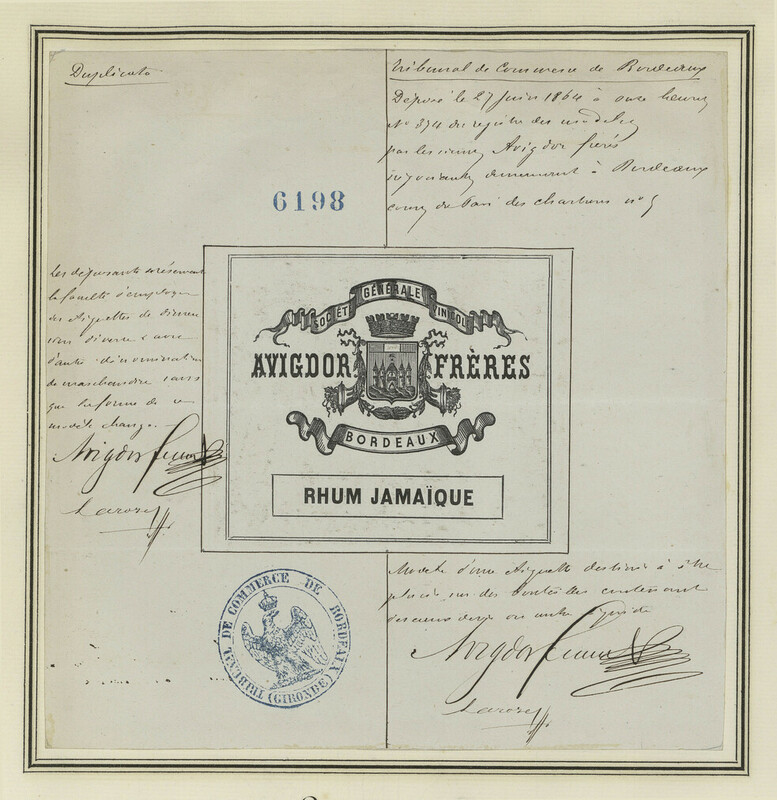 Duplicata
Tribunal de Commerce de Bordeaux
Déposé le 27 Juin 1864 à onze heures
N° 374 du registre des modèles
par les sieurs Avigdor frères
négociants demeurant à Bordeaux
cours du Pavé des Chartrons n° 5
6198
Les déposants se réservent
la faculté d'employer
des étiquettes de dimen
sions diverses & avec
d'autres dénominations
de marchandise sans
que la forme de ce
modèle change.
Avigdor frères
SOCIÉTÉ GÉNÉRALE VINICOLE
AVIGDOR FRÈRES
BORDEAUX
RHUM JAMAÏQUE
TRIBUNAL DE COMMERCE DE BORDEAUX
(GIRONDE)
Modèle d'une étiquette destinée à être
placée sur des bouteilles contenant
ou autre liquide
Avigdor frères